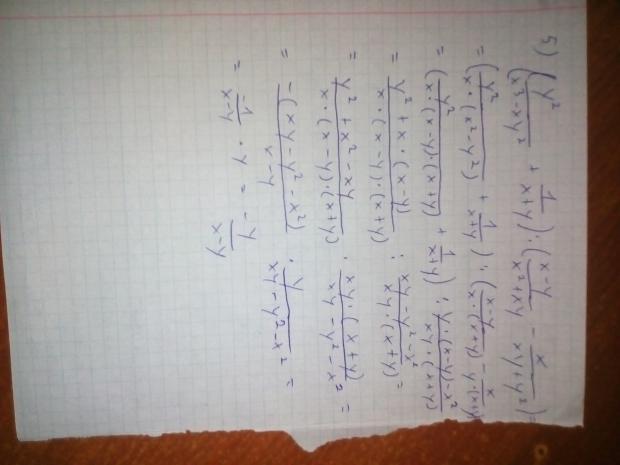 5) (y²/(x³-xy²) + 1/(x+y)) : ((x-y)/(x²+xy) - x/(xy+y²)) =
= (y²/(x·(x²-y²)) + 1/(x+y)) : ((x-y)/(x·(x+y)) - x/(y·(x+y))) =
= (y²/(x·(x-y)·(x+y)) + 1/(x+y)) : (y·(x-y)-x²)/(xy·(x+y)) =
= (y²+x·(x-y))/(x·(x-y)·(x+y)) : (xy-y²-x²)/(xy·(x+y)) =
= (y²+x²-xy)/(x·(x-y)·(x+y)) · (xy·(x+y))/(xy-y²-x²) =
= -(xy-y²-x²)/(x-y) · y/(xy-y²-x²) =
= 1/(x-y) · y = -y/(x-y)